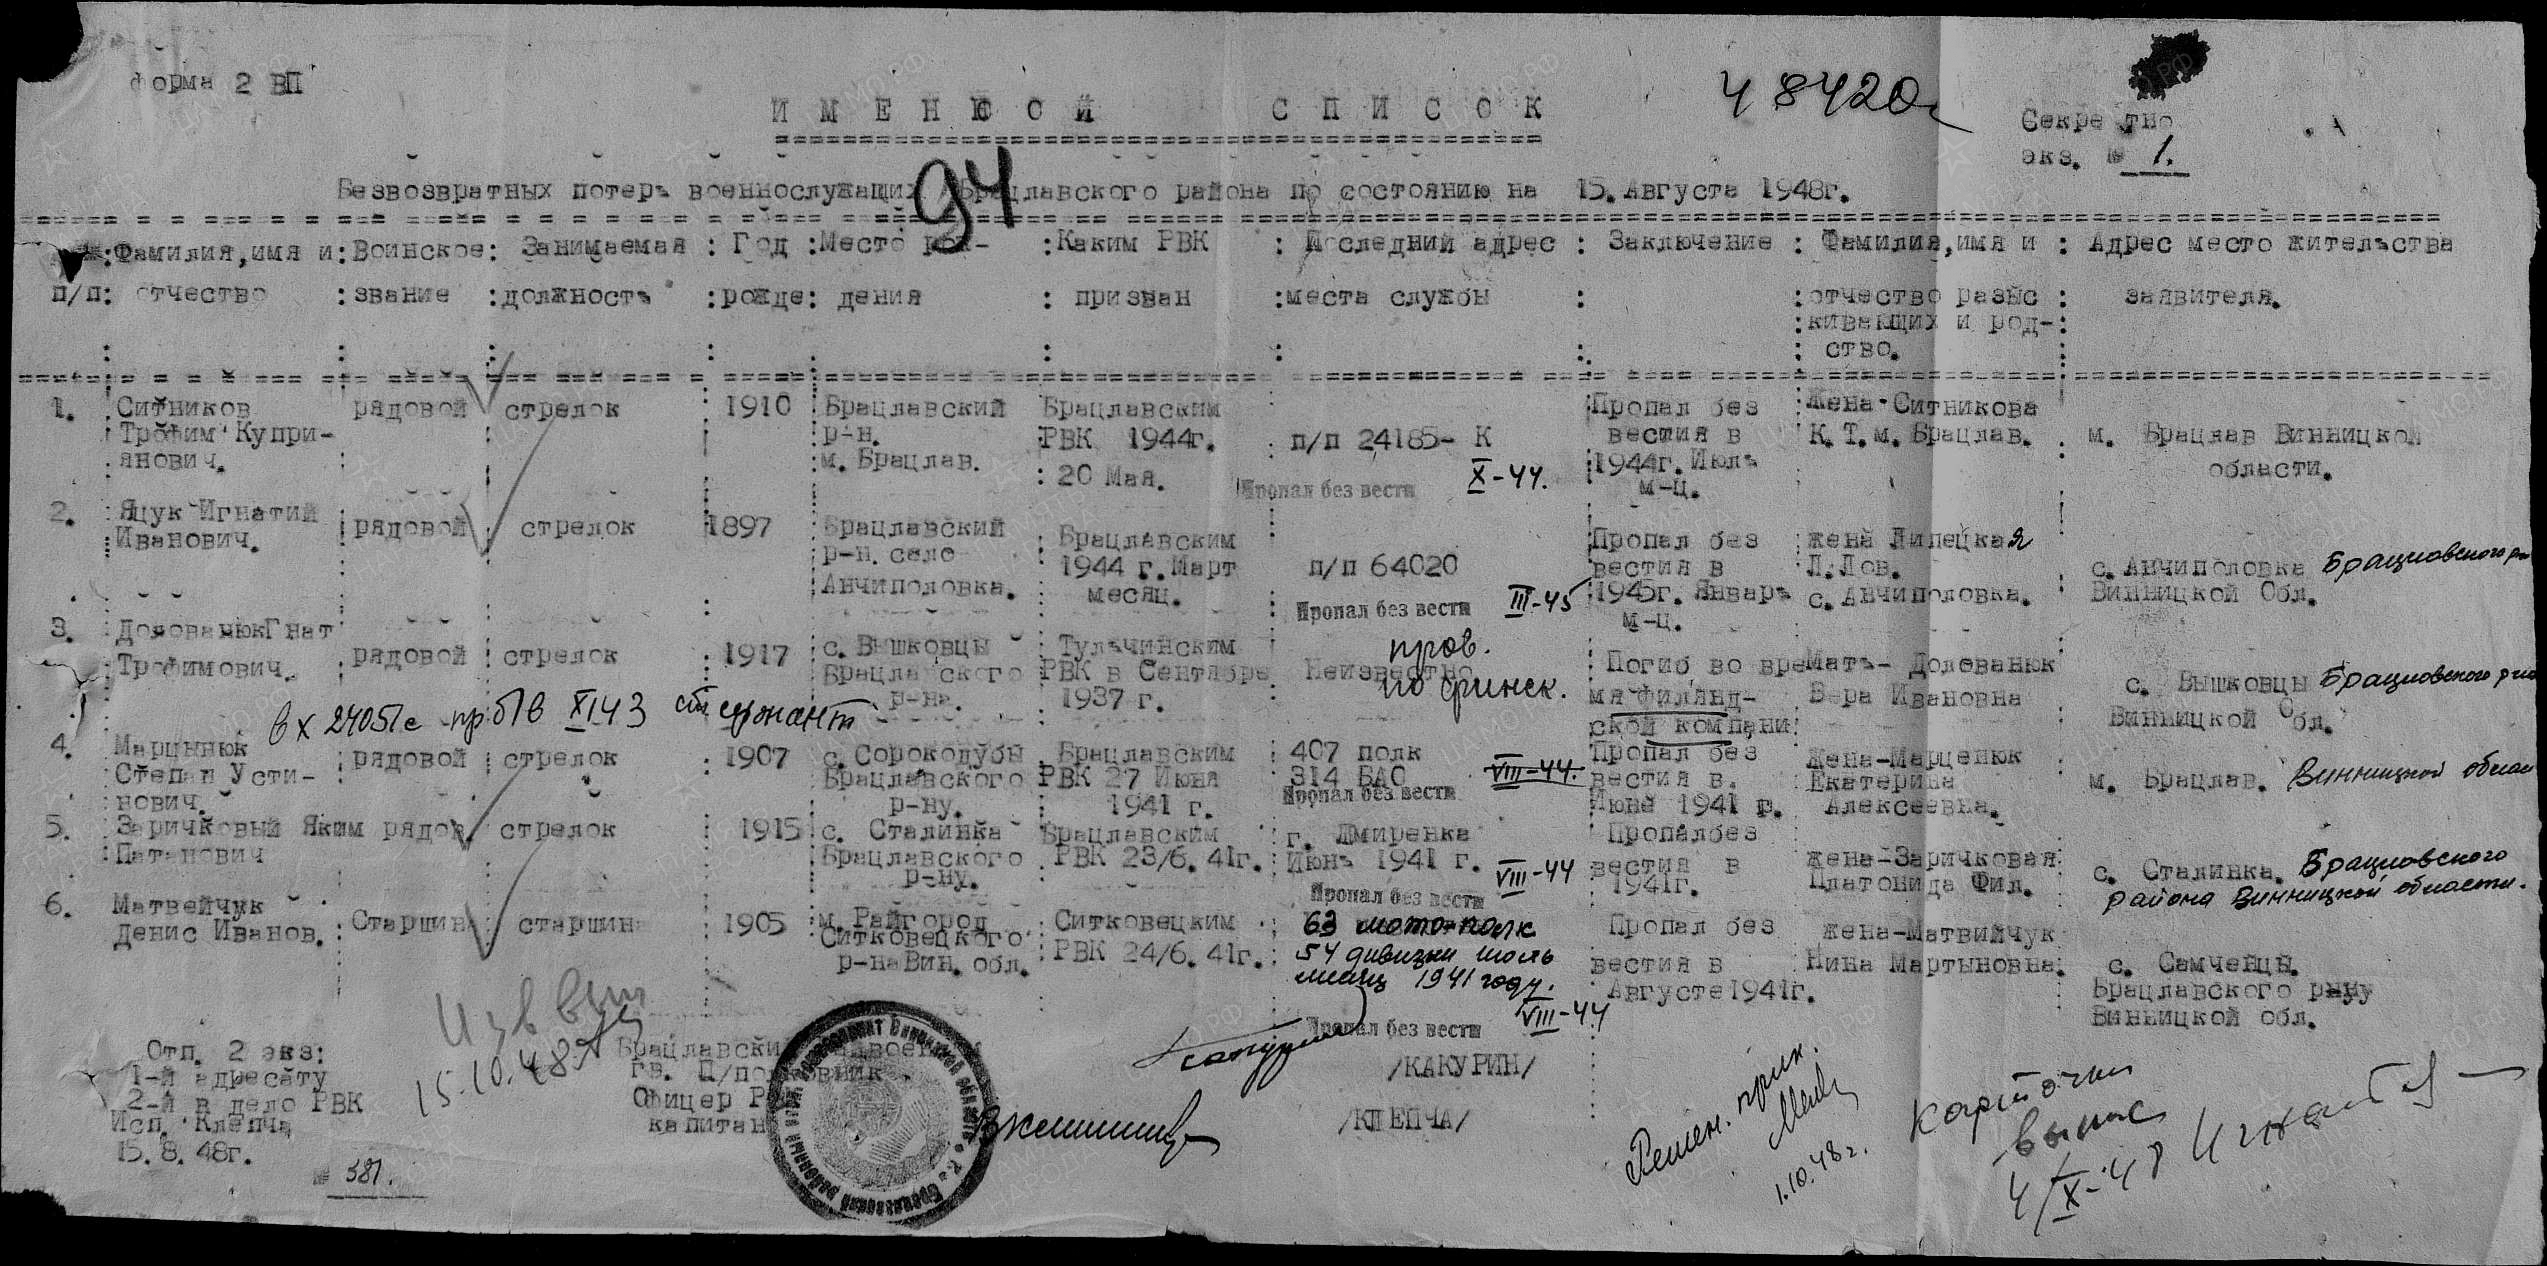 форма 2 ВП
И М Е Н Н О Й С П И С О К
48420
Секретно
экз. № 1.
94
Безвозвратных потерь военнослужащих Брацлавского района по состоянию на 15. Августа 1948г.
№: Фамилия,имя и: Воинское: Занимаемая : Год : Место рож- : Каким РВК : Последний адрес : Заключение : Фамилия,имя и : Адрес место жительства
п/п: отчество : звание : должность : рожде: дения : призван : места службы : : отчество разыс : заявителя.
кивающих и род-
ство.
1. Ситников рядовой стрелок 1910 Брацлавский Брацлавским Пропал без Жена-Ситникова
Трофим Купри- р-н. РВК 1944г. п/п 24185- К вестия в К.Т.м. Брацлав. м. Брацлав Винницкой
янович. м. Брацлав. 20 Мая. Пропал без вести X-44. 1944г. Июль области.
м-ц.
2. Яцук Игнатий рядовой стрелок 1897 Брацлавский Брацлавским Пропал без жена Липецкая
Иванович. р-н. село 1944 г. Март п/п 64020 вестия в Л.Лов. с. Анчиполовка Брацлавского
Анчиполовка. месяц. Пропал без вести III-45 1945г. Январь с. Анчиполовка. Винницкой Обл.
м-ц.
3. Долованюк Гнат рядовой стрелок 1917 с. Вышковцы Тульчинским пров. Погиб во вре Мать- Долованюк
Трофимович. Брацлавского РВК в Сентябре Неизвестно по финск. мя филянд- Вера Ивановна с. Вышковцы Брацлавского
р-на. 1937 г. ской компани Винницкой Обл.
вх 24051с XI 43 сержант
4. Марцынюк рядовой стрелок 1907 с. Сорокодубы Брацлавским 407 полк Пропал без Жена-Марценюк
Степан Усти- Брацлавского РВК 27 Июня 314 БАО VIII-44. вестия в. Екатерина м. Брацлав. Винницкой
нович. р-ну. 1941 г. Пропал без вести Июне 1941 г. Алексеевна.
5. Заричковый Яким рядов. стрелок 1915 с. Сталинка Брацлавским г. Жмиренка Пропал без
Патанович Брацлавского РВК 23/6. 41г. Июнь 1941 г. вестия в жена-Заричковая с. Сталинка. Брацлавского
р-ну. Пропал без вести VIII-44 1941г. Платонида Фил. района Винницкой области.
6. Матвейчук Старшина старшина 1905 м. Райгород Ситковецким 63 мото-полк Пропал без жена-Матвийчук
Денис Иванов. Ситковецкого РВК 24/6. 41г. 54 дивизии июль вестия в Нина Мартыновна. с. Самчейцы.
р-на Вин. обл. месяц 1941 году. Августе 1941г. Брацлавского р-ну
Пропал без вести VIII-44 Винницкой обл.
15.10.48
Отп. 2 экз:
1-й адресату
2-й в дело РВК
Исп. Клепча
15.8.48г.
№ 381.
Брацлавский
гв. П/полковник /КАКУРИН/
Офицер
капитан /КЛЕПЧА/
1.10.48г.
Карточки
4/X-48